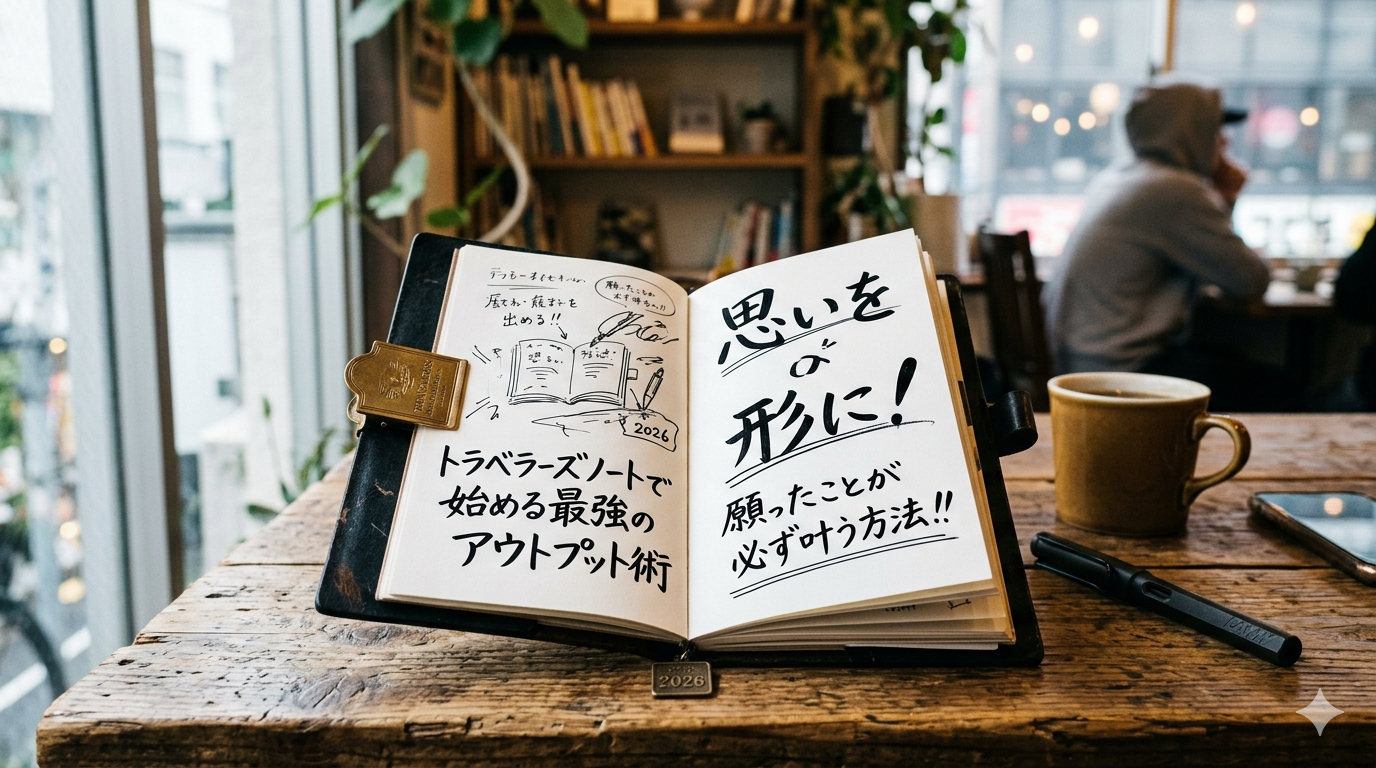 出める!!
2026
トラベラーズノートで
始める最強の
アウトプット術
思いを
形に!
願ったことが
必ず叶う方法!!
2026